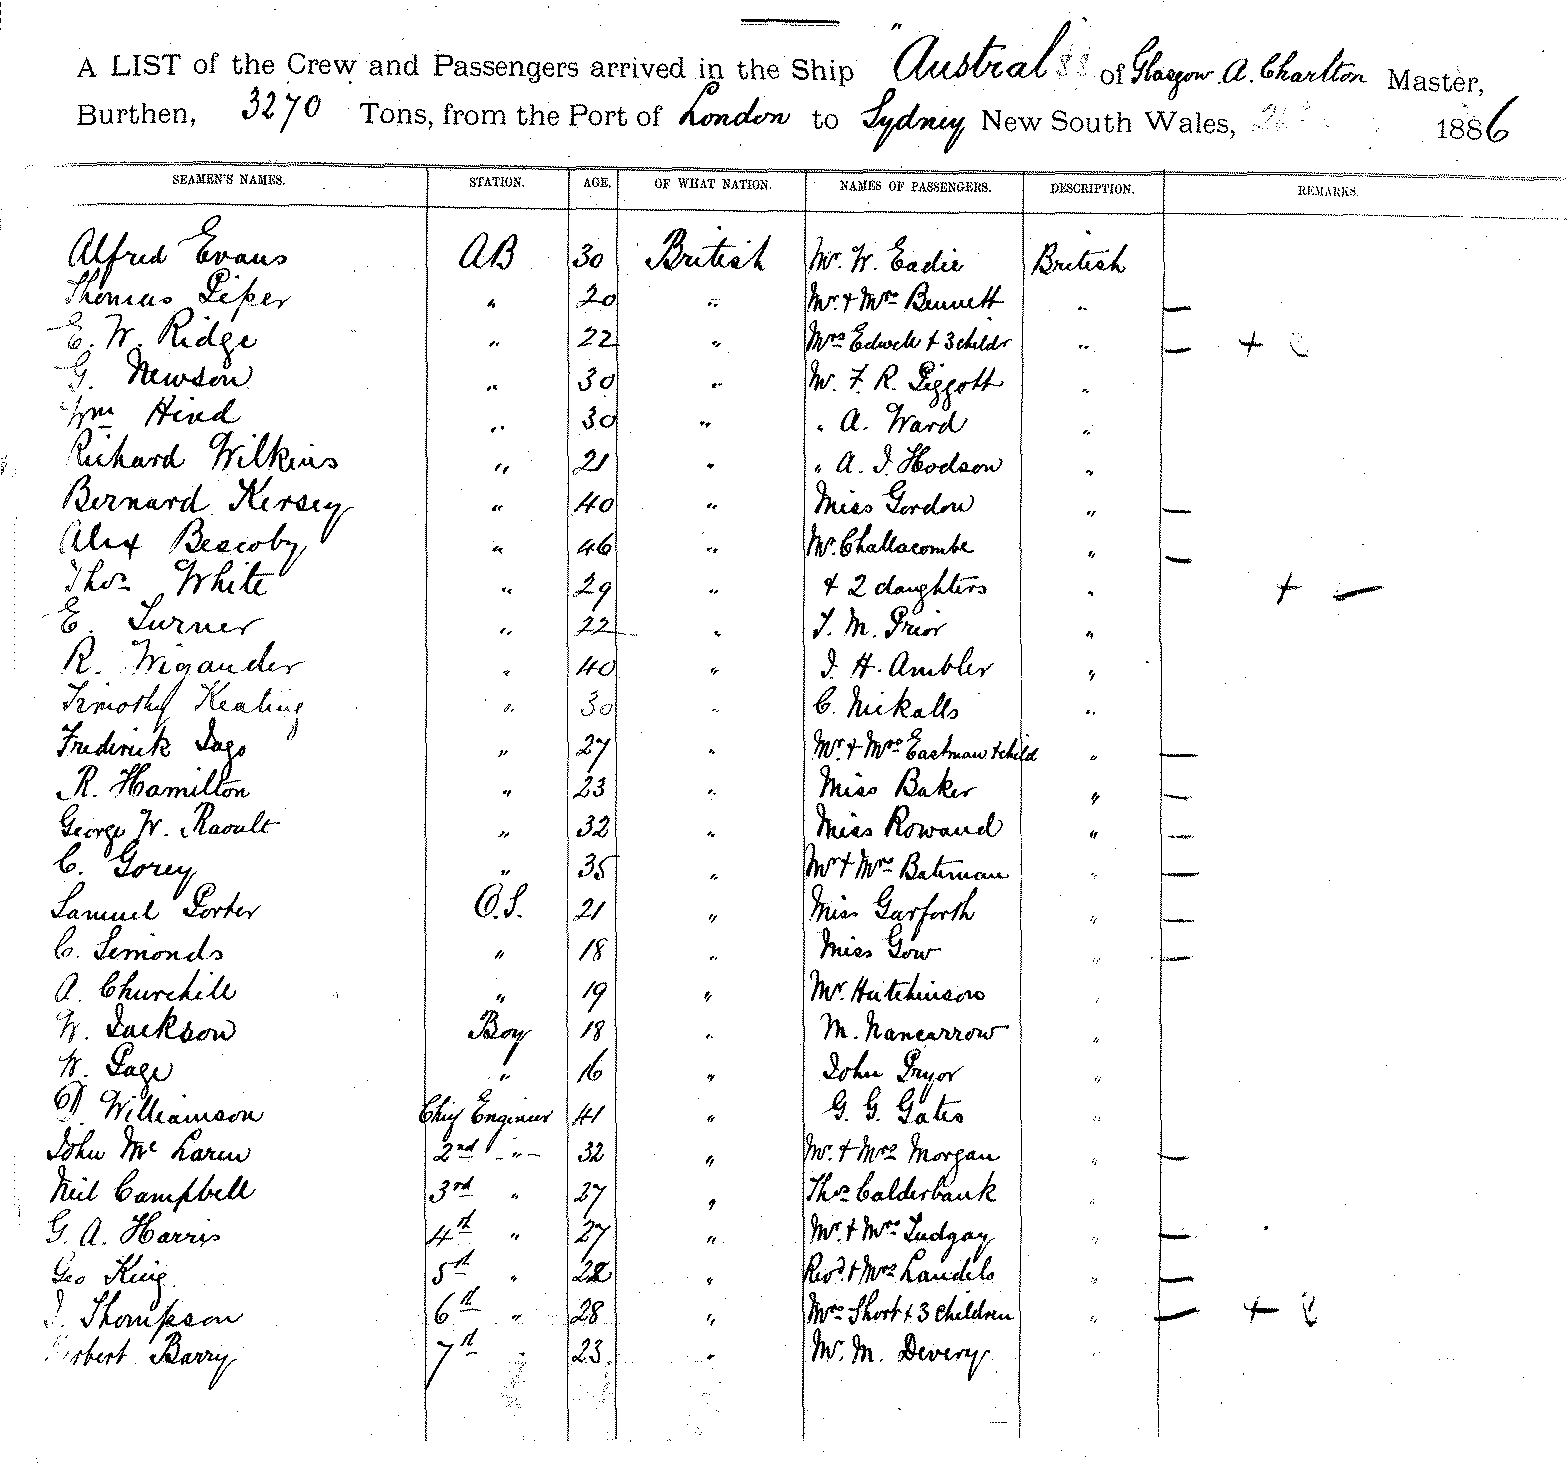 A LIST of the Crew and Passengers arrived in the Ship "Austral SS of Glasgow A. Charlton Master,
Burthen, 3270 Tons, from the Port of London to Sydney New South Wales, 1886
SEAMEN'S NAMES. STATION. AGE. OF WHAT NATION. NAMES OF PASSENGERS. DESCRIPTION. REMARKS.
Alfred Evans AB 30 British Mr. W. Eadie British
Thomas Piper " 20 " Mr. + Mrs Bennett " —
E. W. Ridge " 22 " Mrs + 3 childr " — +
G. Newson " 30 " Mr. F. R. Piggott "
Wm Hind " 30 " " A. Ward "
Richard Wilkins " 21 " " A. J. Hodson "
Bernard Kersey " 40 " Miss Gordon " —
Alex Bescoby " 46 " Mr. Challacombe " —
Thos White " 29 " + 2 daughters " + —
E. Turner " 22 " T. M. Prior "
R. Wigander " 40 " J. H. Ambler "
Timothy Keating " 30 " C. Nickalls "
Frederick Jago " 27 " Mr. + Mrs Eastman + child " —
R. Hamilton " 23 " Miss Baker " —
George W. Raoult " 32 " Miss Rowand " —
C. Gorey " 35 " Mr + Mrs Bateman " —
Samuel Porter O.S. 21 " Miss Garforth " —
C. Simonds " 18 " Miss Gow " —
A. Churchill " 19 " Mr. Hutchinson "
W. Jackson Boy 18 " M. Nancarrow "
W. Page " 16 " John Pryor "
D. Williamson Chief Engineer 41 " G. G. Gates "
John Mc Laren 2nd " 32 " Mr. + Mrs Morgan " —
Neil Campbell 3rd " 27 " Thos Calderbank "
G. A. Harris 4th " 27 " Mr. + Mrs Ludgay " —
Geo King 5th " 28 " Revd. + Mrs Landels " —
J. Thompson 6th " 28 " Mrs Short + 3 children " — +
Barry 7th " 23 " Mr. M. Devery "